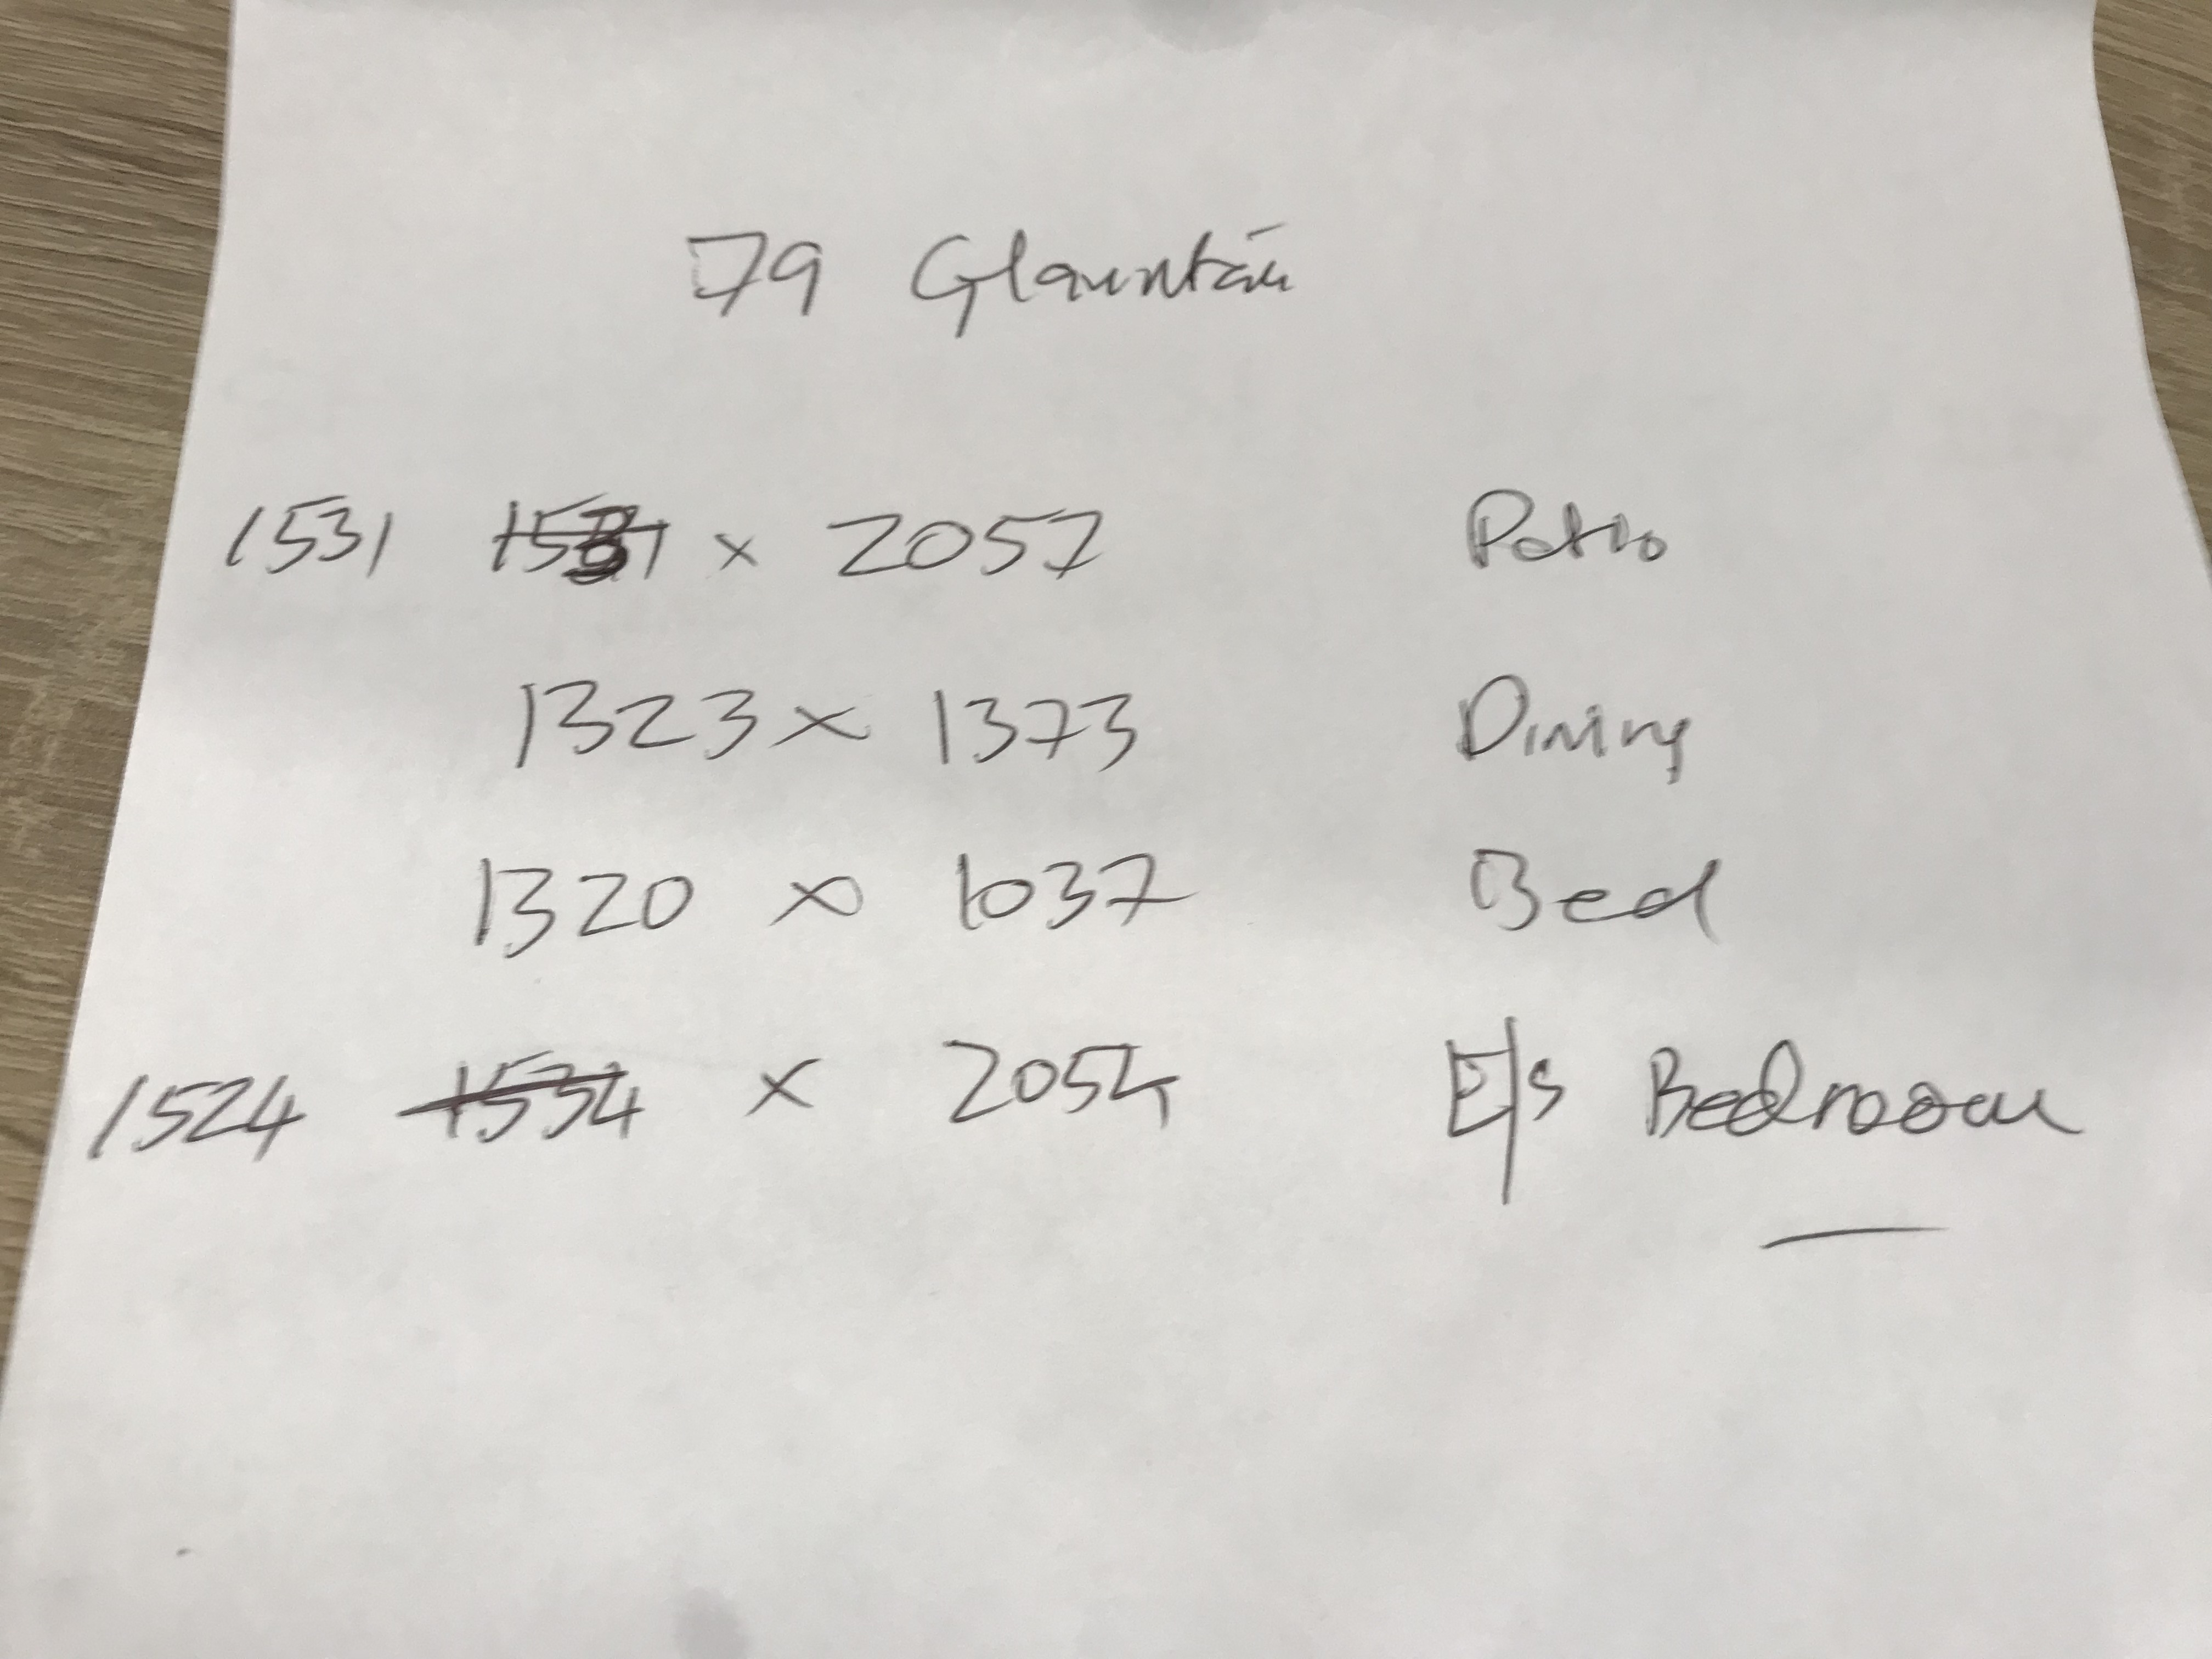 79 Glauntán
1531 x 2057 Patio
1323 x 1373 Dining
1320 x 1037 Bed
1524 1534 x 2054 E/s Bedroom